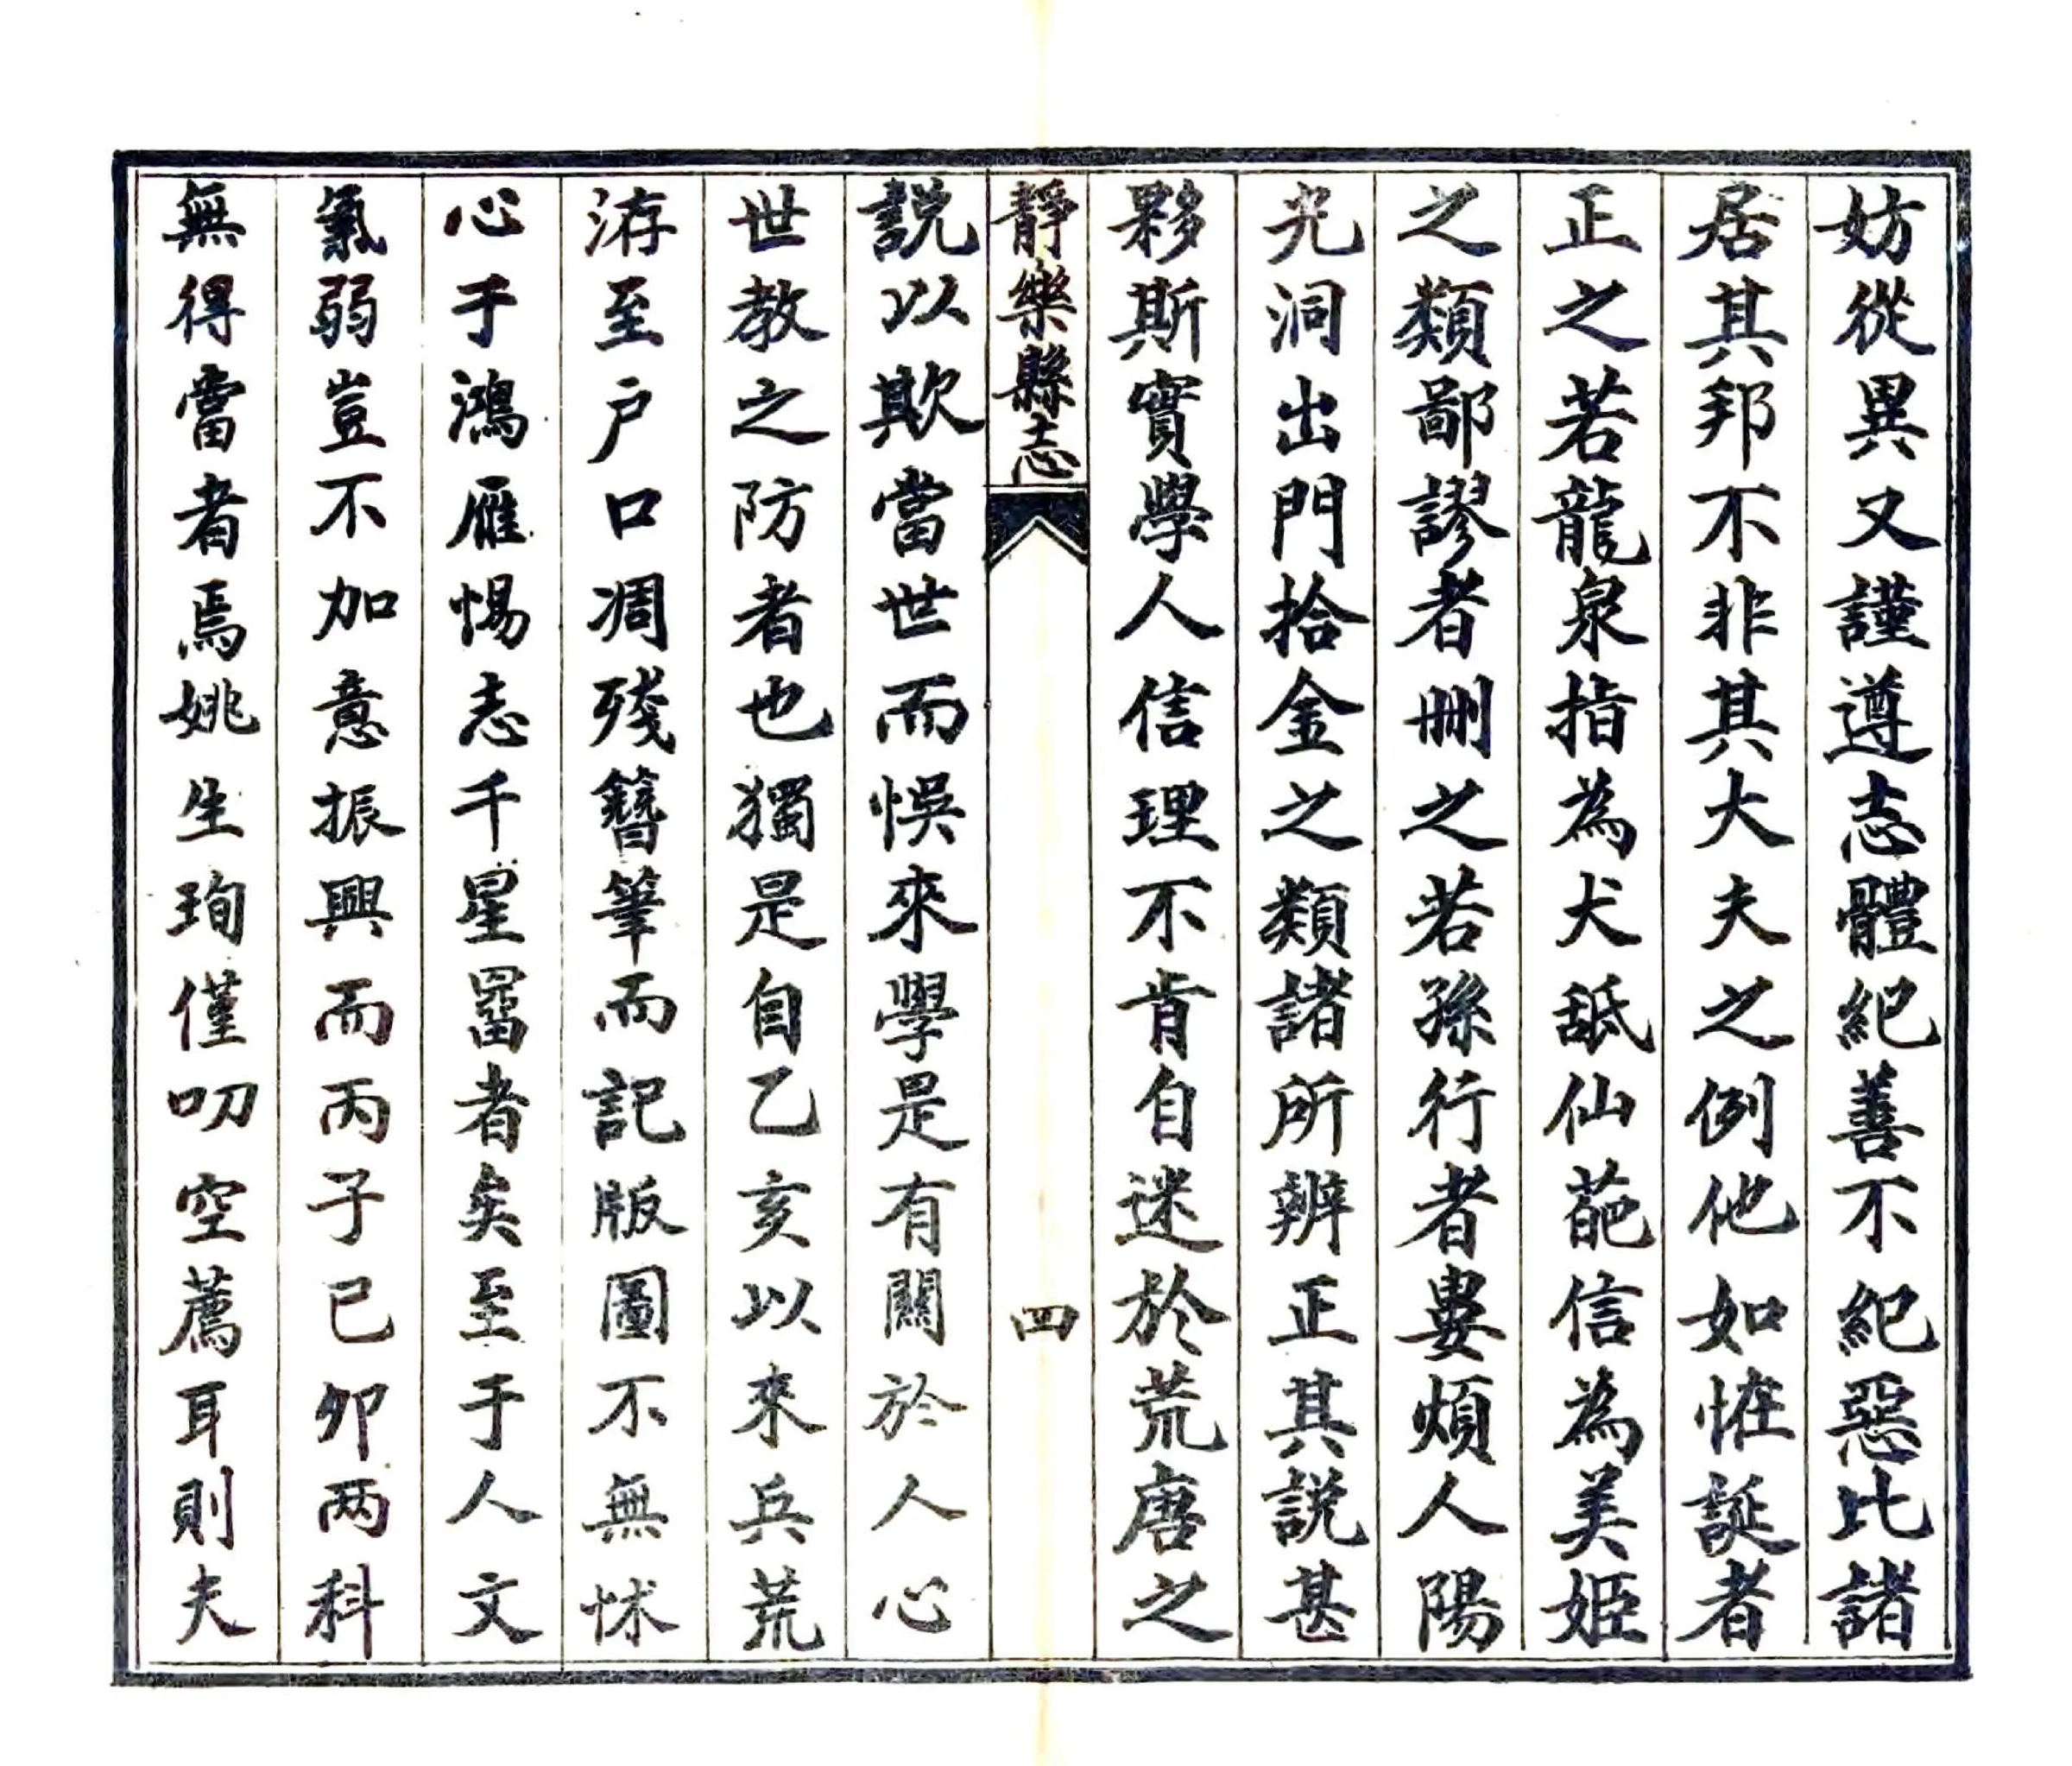 妨從異又謹遵志體紀善不紀惡比諸
居其邦不非其大夫之例他如恠誕者
正之若龍泉指為犬舐仙葩信為美姬
之類鄙謬者刪之若孫行者婁煩人陽
光洞出門拾金之類諸所辨正其説甚
夥斯實學人信理不肯自迷於荒唐之
靜樂縣志
四
説以欺當世而悞來學是有關於人心
世教之防者也獨是自乙亥以來兵荒
洊至户口凋殘簪筆而記版圖不無怵
心于鴻雁惕志千星罶者矣至于人文
氣弱豈不加意振興而丙子已卯两科
無得當者焉姚生珣僅叨空薦耳則夫